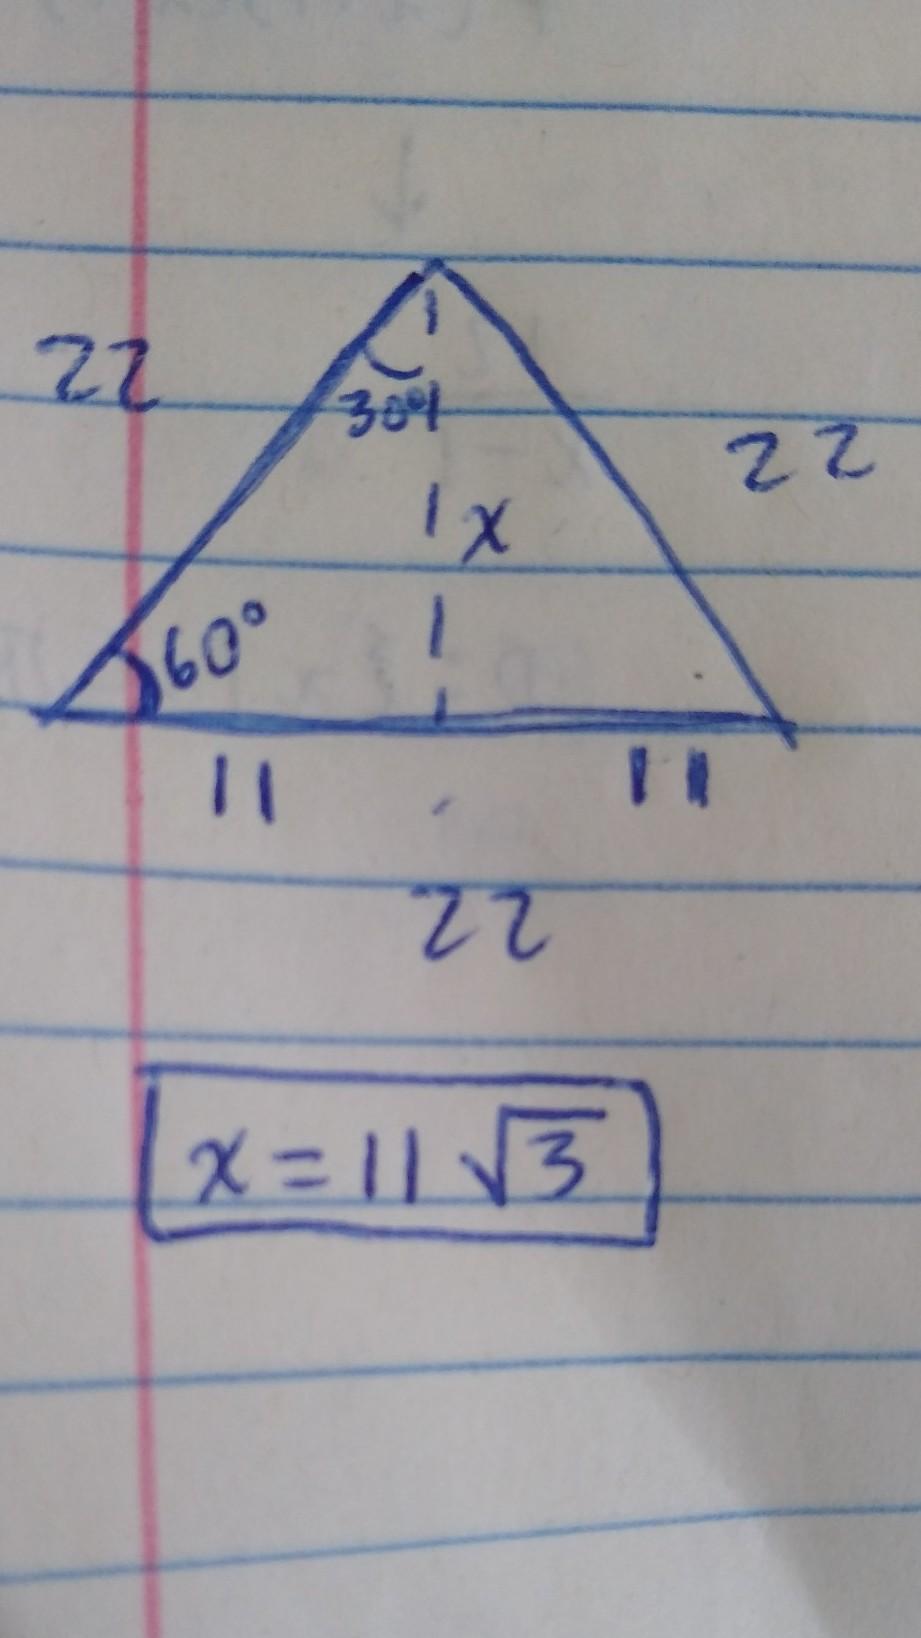 22
30°
22
x
60°
11 11
22
x = 11 √3